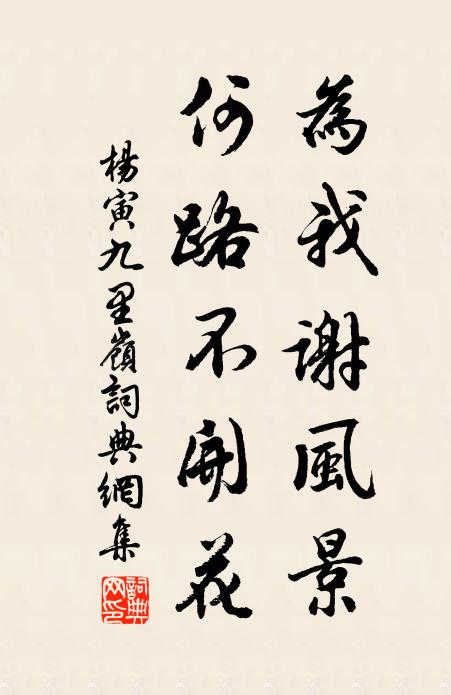 為我謝風景
何路不開花
楊寅九里嶺詞典網集
詞典网印